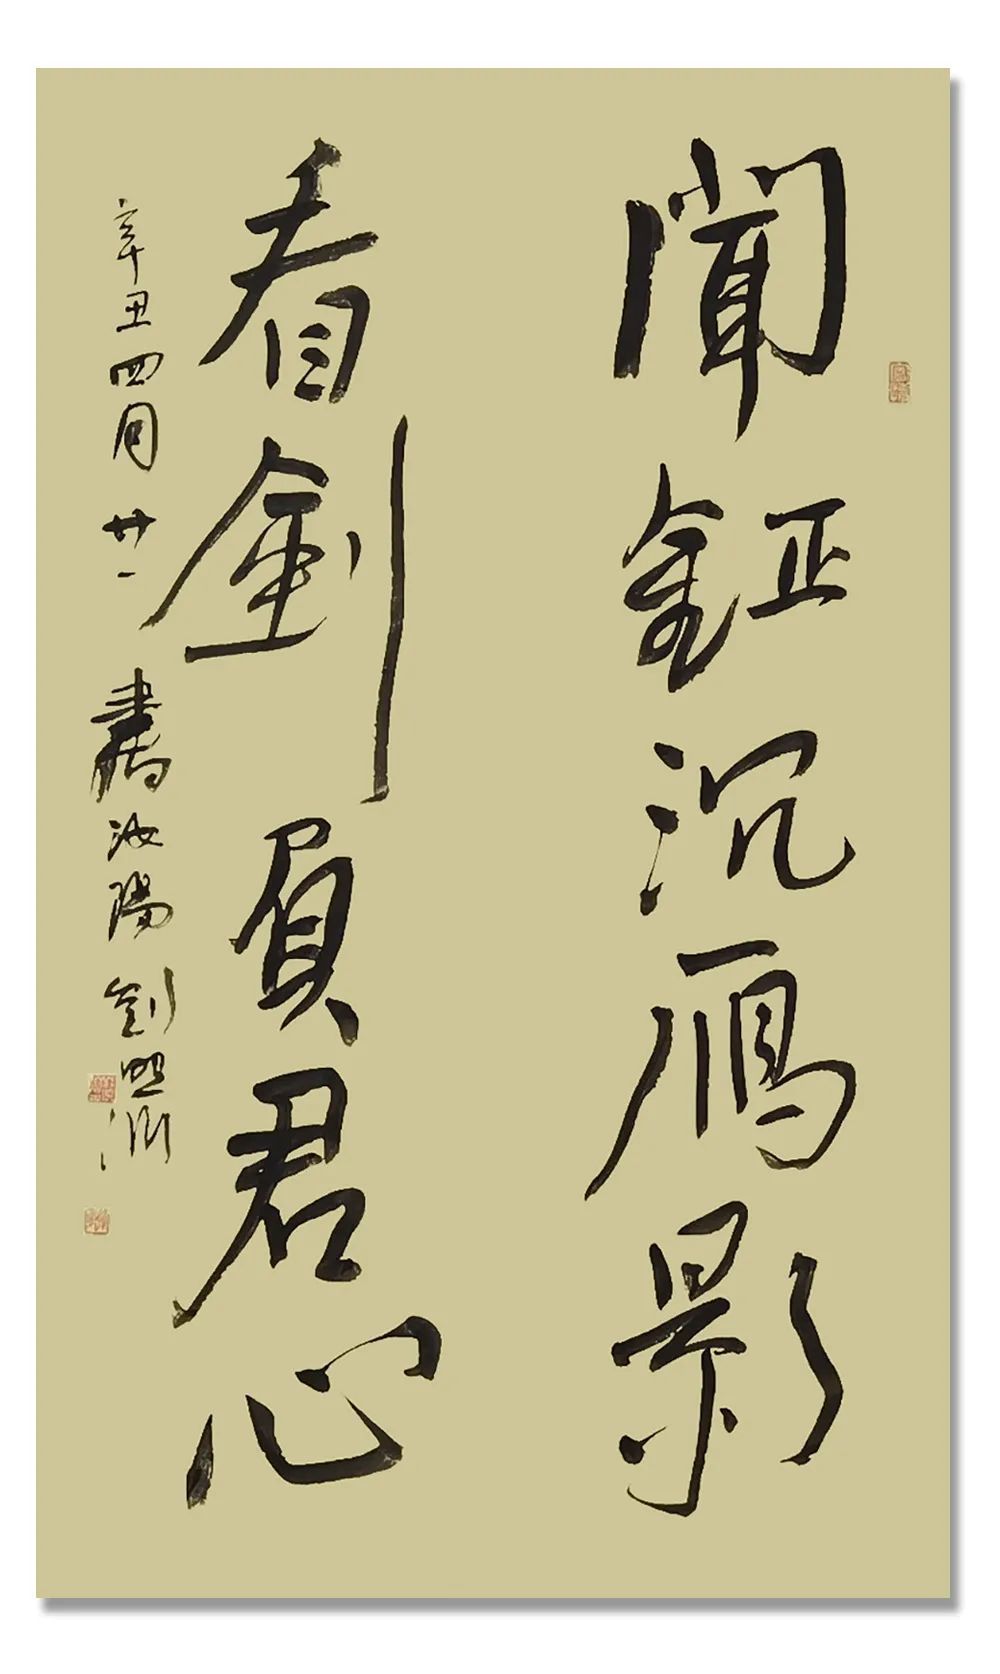 聞鉦沉雁影
看劍負君心
辛丑四月廿一書汝陽劉照淵